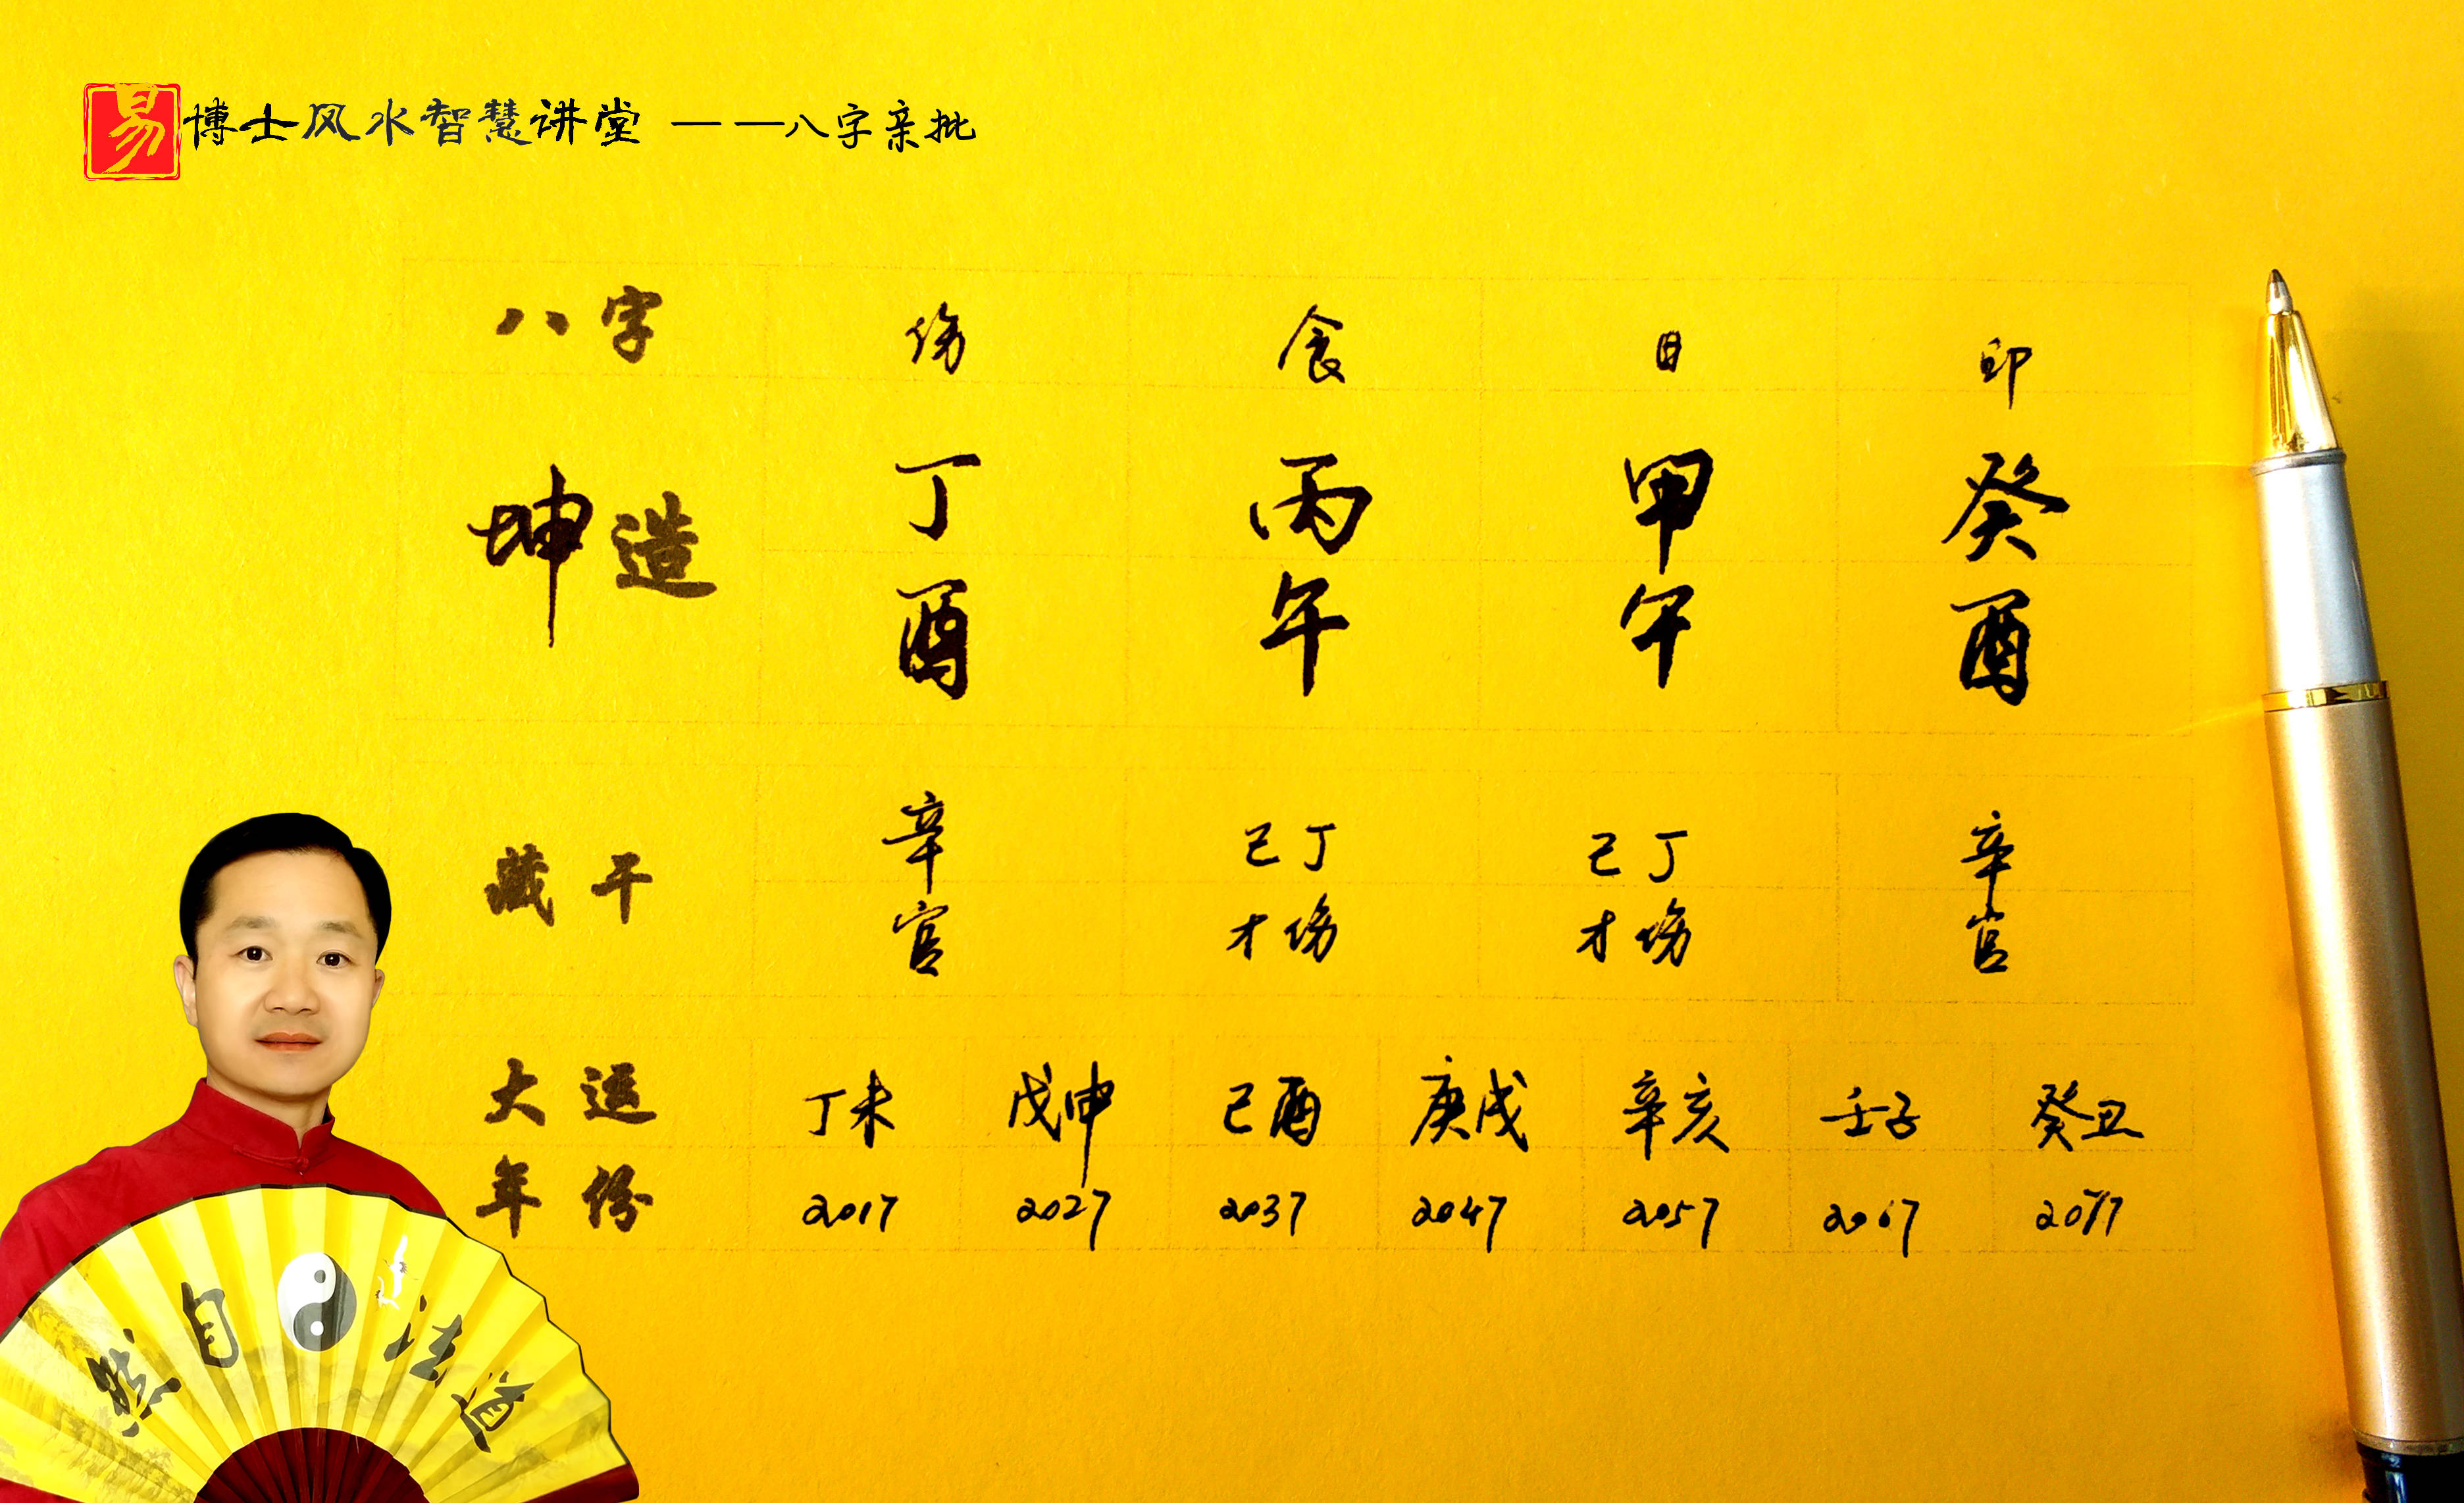 易博士风水智慧讲堂 ——八字亲批
八字 伤 食 日 印
坤造 丁 丙 甲 癸
酉 午 午 酉
藏干 辛 己丁 己丁 辛
官 才伤 才伤 官
大运 丁未 戊申 己酉 庚戌 辛亥 壬子 癸丑
年份 2017 2027 2037 2047 2057 2067 2077
然自法道